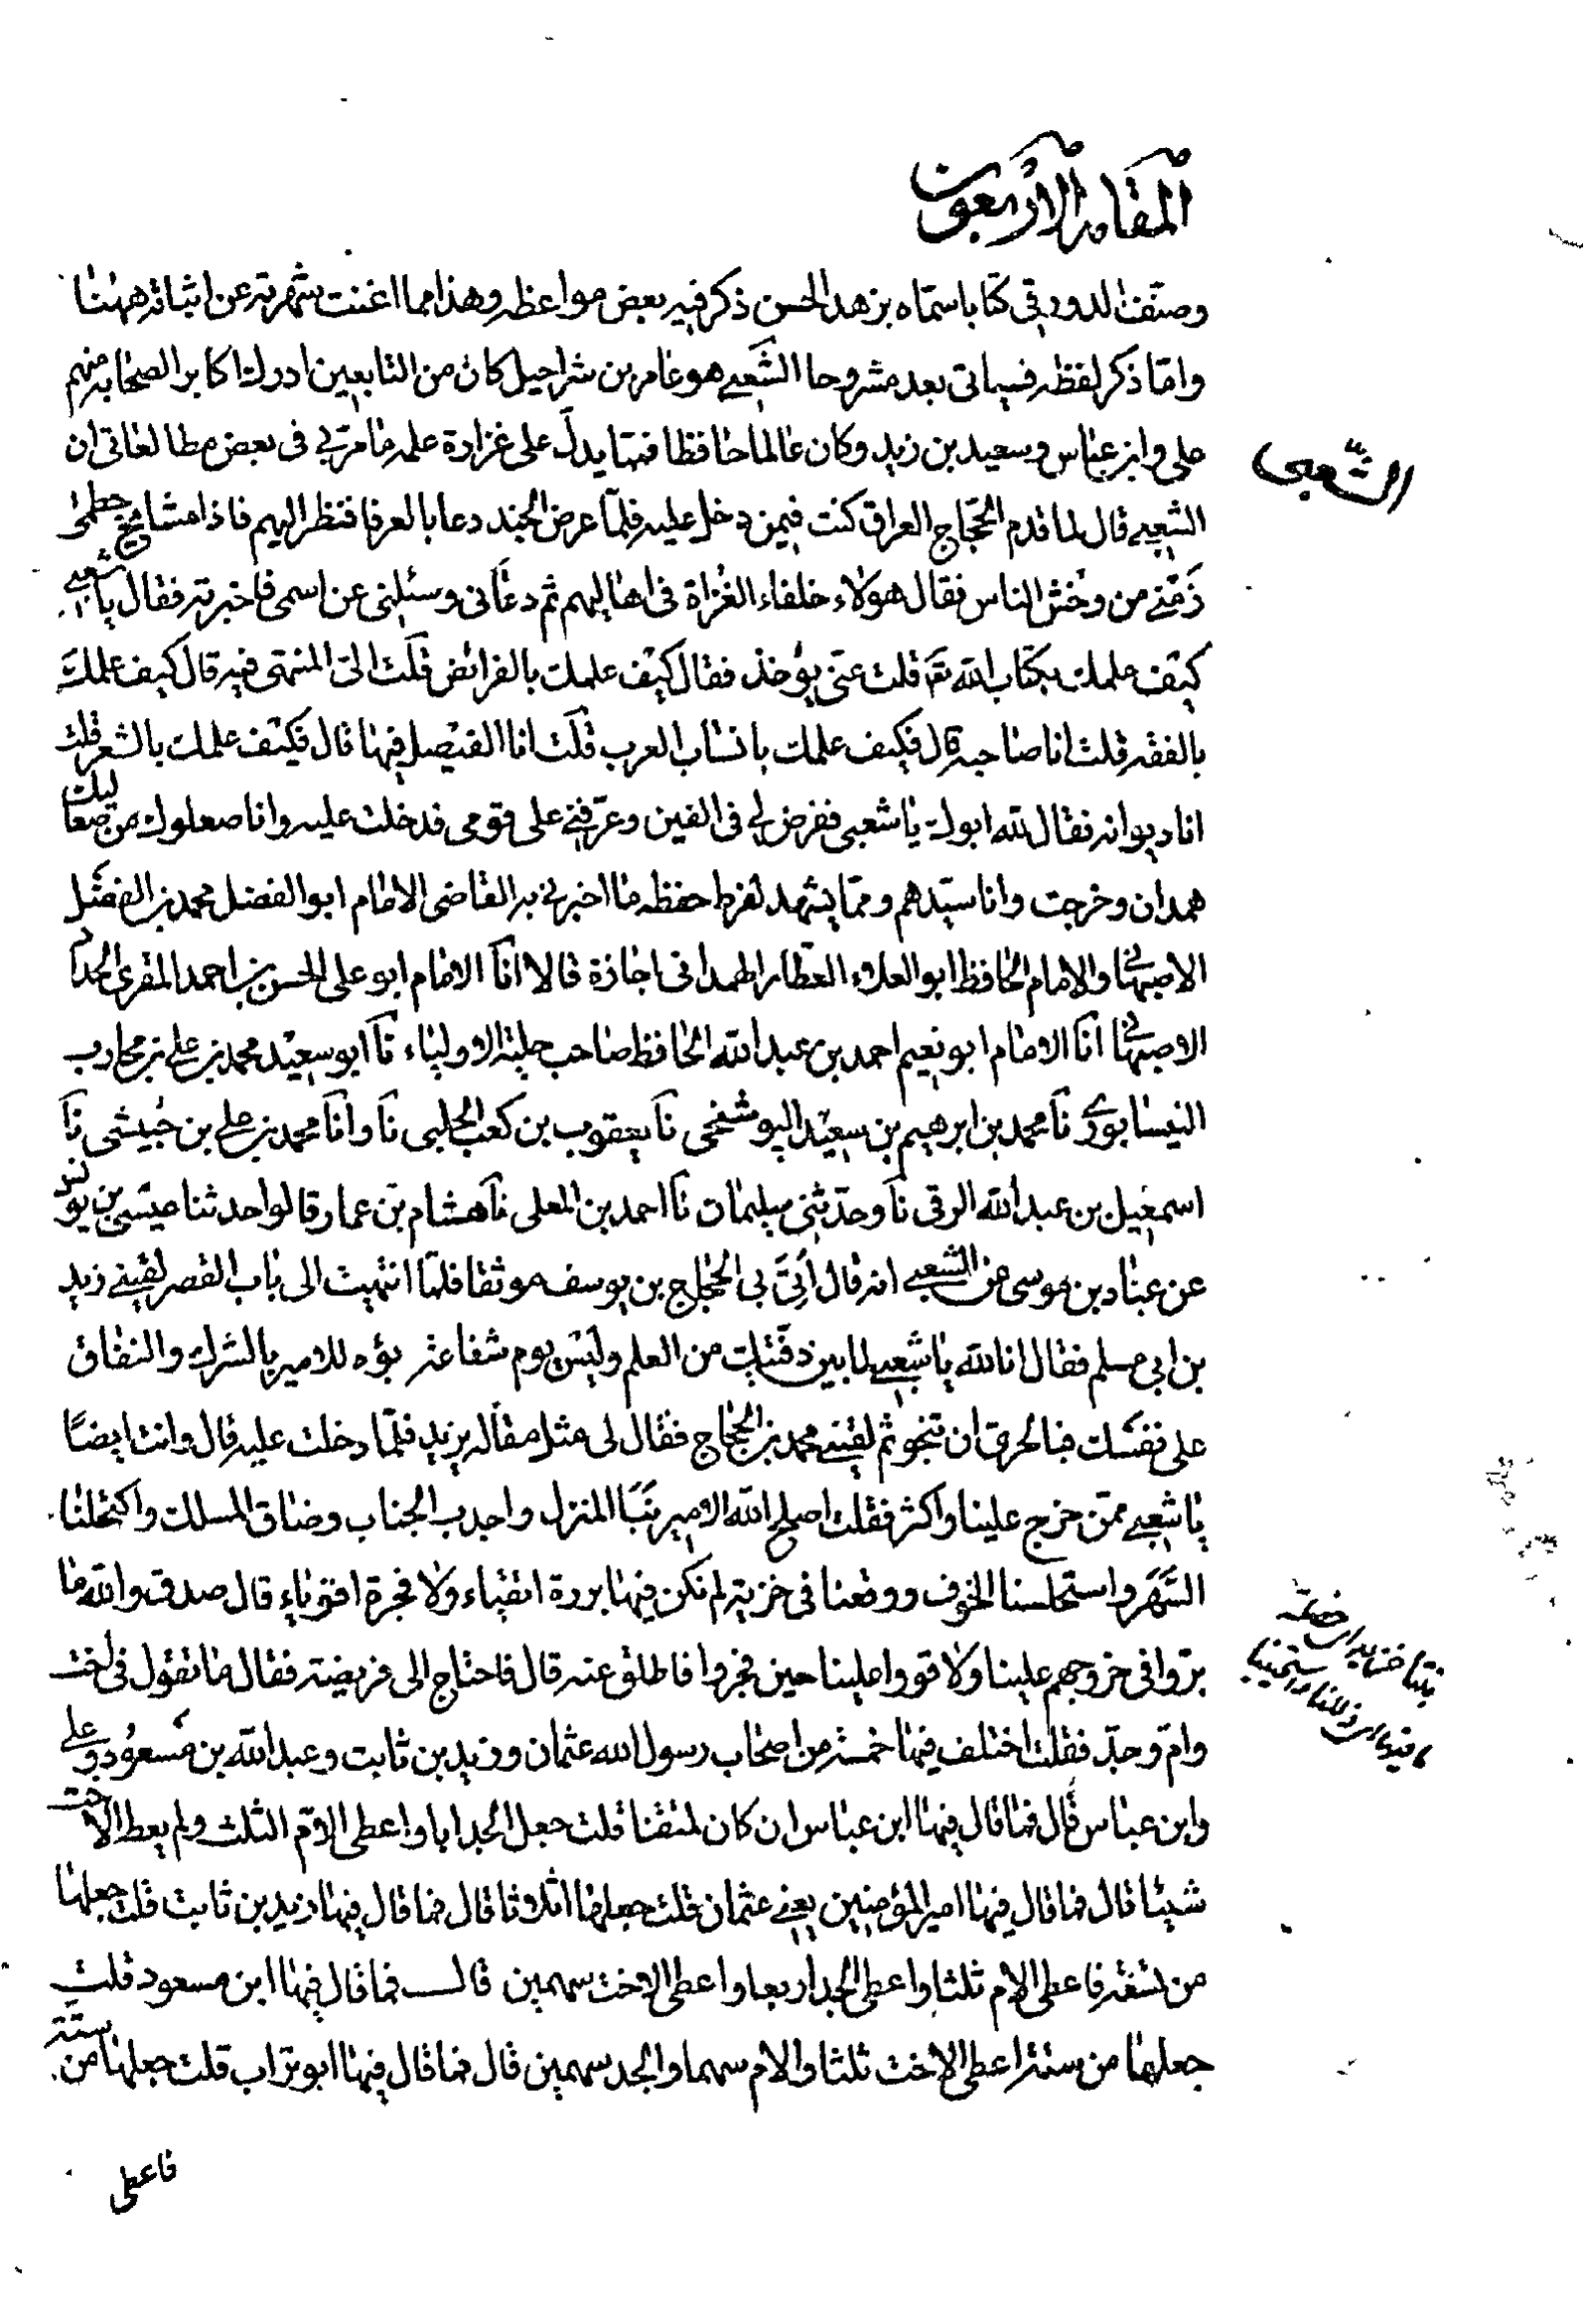 المقامة الاربعون
وصنف الدورقي كتابا سماه بزهد الحسن ذكر فيه بعض مواعظه وهذا مما اغنت شهرته عن اثباته ههنا
واما ذكر لفظه فسياتي بعد مشروحا الشعبي هو عامر بن شراحيل كان من التابعين ادرك اكابر الصحابة منهم
علي وابن عباس وسعيد بن زيد وكان عالما حافظا فمما يدل على غزارة علمه ما مر بي في بعض مطالعاتي ان
الشعبي
الشعبي قال لما قدم الحجاج العراق كنت فيمن دخل عليه فلما عرض الجند دعا بالعرفا فنظر اليهم فاذا مشايخ
زمني من وخش الناس فقال هؤلاء خلفاء الغزاة في اهاليهم ثم دعاني وسئلني عن اسمي فاخبرته فقال يا شعبي
كيف علمك بكتاب الله تم قلت عني يؤخذ فقال كيف علمك بالفرائض قلت الي المنتهى فيه قال كيف علمك
بالفقه قلت انا صاحبه قال فكيف علمك بانساب العرب قلت انا الفيصل فيها قال فكيف علمك بالشعر قلت
انا ديوانه فقال لله ابوك يا شعبي ففرض لي في الفين وعرفني على قومي فدخلت عليه وانا صعلوك من صعاليك
همدان وخرجت وانا سيدهم ومما يشهد لفرط حفظه ما اخبرني به القاضي الامام ابو الفضل محمد بن الفضل
الاصبهاني والامام الحافظ ابو العلاء العطار الهمداني اجازة قالا انا الامام ابو علي الحسن بن احمد المقري الحداد
الاصبهاني انا الامام ابو نعيم احمد بن عبد الله الحافظ صاحب حلية الاولياء نا ابو سعيد محمد بن علي بن محارب
النيسابوري نا محمد بن ابرهيم بن سعيد البوشنجي نا يعقوب بن كعب الحلبي نا وانا محمد بن علي بن حبيش نا
اسمعيل بن عبد الله الرقي نا وحدثني سليمان نا احمد بن المعلى نا هشام بن عمار قالوا حدثنا عيسى بن يونس
عن عباد بن موسى عن الشعبي انه قال اتي بي الحجاج بن يوسف موثقا فلما انتهيت الى باب القصر لقيني زيد
بن ابي مسلم فقال انا لله يا شعبي لما بين دفتيك من العلم وليس يوم شفاعة بؤه للامير بالشرك والنفاق
على نفسك فبالحري ان تنجو ثم لقيني محمد بن الحجاج فقال لي مثل مقالة يزيد فلما دخلت عليه قال وانت ايضا
يا شعبي ممن خرج علينا واكثر فقلت اصلح الله الامير نبا المنزل واجدب الجناب وضاق المسلك واكتحلنا
السهر واستحلسنا الخوف ووقعنا في خزية لم نكن فيها بررة اتقياء ولا فجرة اقوياء قال صدق والله ما
بروا في خروجهم علينا ولا قووا علينا حين فجروا فاطلق عنه قال فاحتاج الى فريضة فقال ما تقول في اخت
وام وجد فقلت اختلف فيها خمسة من اصحاب رسول الله عثمان وزيد بن ثابت وعبد الله بن مسعود وعلي
وابن عباس قال فما قال فيها ابن عباس ان كان لمتقنا قلت جعل الجد ابا واعطى الام الثلث ولم يعط الاخت
شيئا قال فما قال فيها امير المؤمنين يعني عثمان قلت جعلها اثلاثا قال فما قال فيها زيد بن ثابت قلت جعلها
من تسعة فاعطى الام ثلثا واعطى الجد اربعا واعطى الاخت سهمين قال فما قال فيها ابن مسعود قلت
جعلها من ستة اعطى الاخت ثلثا والام سهما والجد سهمين قال فما قال فيها ابو تراب قلت جعلها من ستة
فاعطى